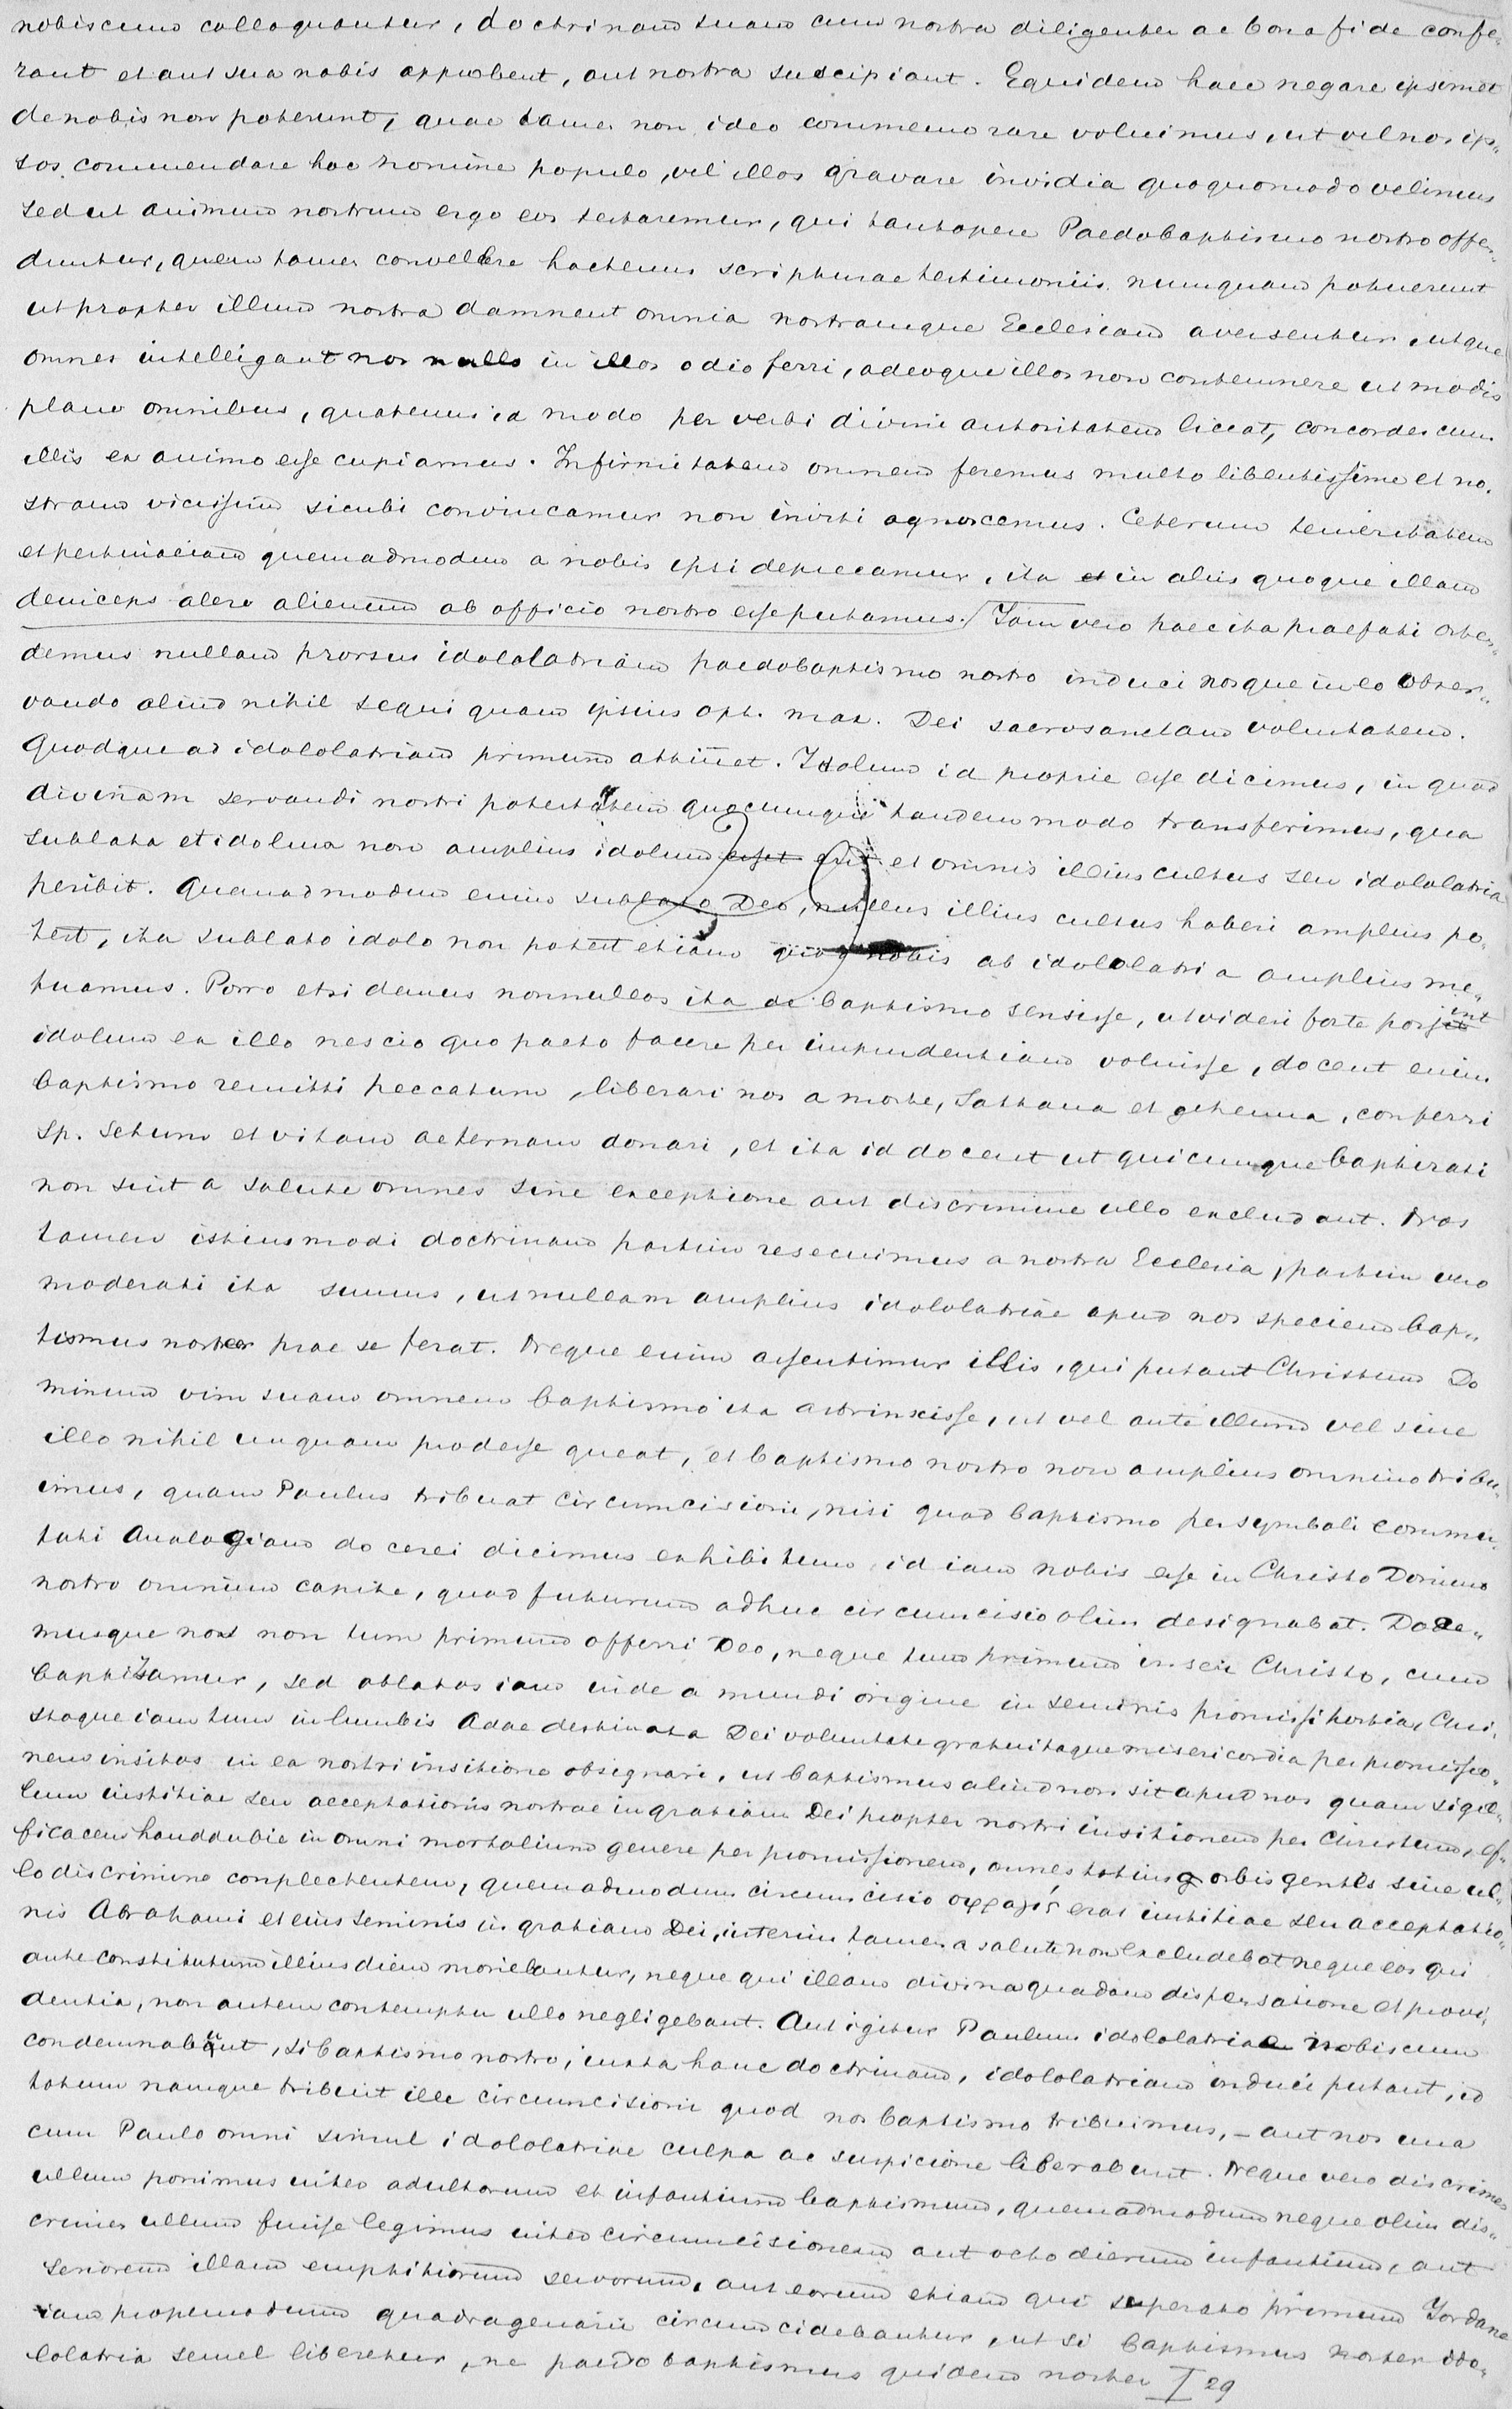 nobiscum colloquantur, doctrinam suam cum nostra diligenter ac bona fide confe„
rant et aut sua nobis approbent, aut nostra suscipiant. Equidem haec negare ipsimet
de nobis non poterunt, quae tamen non ideo commemorare voluimus, ut vel nos ip„
sos commendare hoc nomine populo, vel illos gravare invidia quoquomodo velimus
sed ut animum nostrum erga eos testaremur, qui tantopere Paedobaptismo nostro offen„
duntur, quem tamen convellere hactenus scripturae testimoniis nunquam potuerunt
ut propter illum nostra damnent omnia nostramque Ecclesiam aversentur, utque
omnes intelligant nos nullo in illos odio ferri, adeoque illos non contemnere ut modis
plane omnibus, quatenus id modo per verbi divini autoritatem liceat, concordes cum
illis ex animo esse cupiamus. Infirmitatem omnem feremus multo libentissime et no„
stram vicissim sicubi convincamur non inviti agnoscemus. Ceterum temeritatem
et pertinaciam quemadmodum a nobis ipsi deprecamur, ita et in aliis quoque illam
deinceps alere alienum ab officio nostro esse putamus. Iam vero haec ita praefati osten„
demus nullam prorsus idololatriam paedobaptismo nostro induci nosque in eo obser„
vando aliud nihil sequi quam ipsius opt. max. Dei sacrosanctam voluntatem.
Quodque ad idololatriam primum attinet. Idolum id proprie esse dicimus, in quod
divinam servandi nostri potestatem quocunque tandem modo transferimus, qua
sublata et idolum non amplius idolum esset erit et omnis illius cultus seu idololatria
peribit. Quemadmodum enim sublato Deo, nullus illius cultus haberi amplius po„
test, ita sublato idolo non potest etiam quoq nobis ab idololatria amplius me„
tuamus. Porro etsi demus nonnullos ita de baptismo sensisse, ut videri forte possint
idolum ex illo nescio quo pacto facere per imprudentiam voluisse, docent enim
baptismo remitti peccatum, liberari nos a morte, Sathana et gehenna, conferri
Sp. Sctum et vitam aeternam donari, et ita id docent ut quicunque baptizati
non sint a salute omnes sine exceptione aut discrimine ullo excludant. Nos
tamen istiusmodi doctrinam partim resecuimus a nostra Ecclesia, partim vero
moderati ita sumus, ut nullam amplius idololatriae apud nos speciem bap„
tismus noster prae se ferat. Neque enim assentimur illis, qui putant Christum Do
minum vim suam omnem baptismo ita astrinxisse, ut vel ante illum vel sine
illo nihil unquam prodesse queat, et baptismo nostro non amplius omnino tribu„
imus, quam Paulus tribuat circumcisioni, nisi quod baptismo per symboli commu„
tati Analogiam doceri dicimus exhibitum id iam nobis esse in Christo Domino
nostro omnium capite, quod futurum adhuc circumcisio olim designabat. Doce„
musque nos non tum primum offerri Deo, neque tum primum inseri Christo, cum
baptizamur, sed oblatos iam inde a mundi origine in seminis promissi hostia, Chri„
stoque iam tum in lumbis Adae destinata Dei voluntate gratuitaque misericordia per promissio„
nem insitos in ea nostri insitione obsignari, ut baptismus aliud non sit apud nos quam sigil„
lum iustitiae seu acceptationis nostrae in gratiam Dei propter nostri insitionem per Christum, ef„
ficacem haud dubie in omni mortalium genere per promissionem, omnes totius orbis gentes sine ul„
lo discrimine complectentem, quemadmodum circumcisio σφραγίς erat iustitiae seu acceptatio„
nis Abrahami et eius seminis in gratiam Dei, interim tamen a salute non excludebat neque eos qui
ante constitutum illius diem moriebantur, neque qui illam divina quadam dispensatione et provi„
dentia, non autem contemptu ullo negligebant. Aut igitur Paulum idololatriae nobiscum
condemnabunt, si baptismo nostro, iuxta hanc doctrinam, idololatriam induci putant, id
totum namque tribuit ille circumcisioni quod nos baptismo tribuimus, – aut nos una
cum Paulo omni simul idololatriae culpa ac suspicione liberabunt. Neque vero discrimen
ullum ponimus inter adultorum et infantium baptismum, quemadmodum neque olim dis„
crimen ullum fuisse legimus inter circumcisionem aut octo dierum infantium, aut
seniorum illam emptitiorum servorum, aut eorum etiam qui superato primum Iordane
iam propemodum quadragenarii circumcidebantur, ut si baptismus noster ido„
lolatria semel liberetur, ne paedobaptismus quidem noster I 29